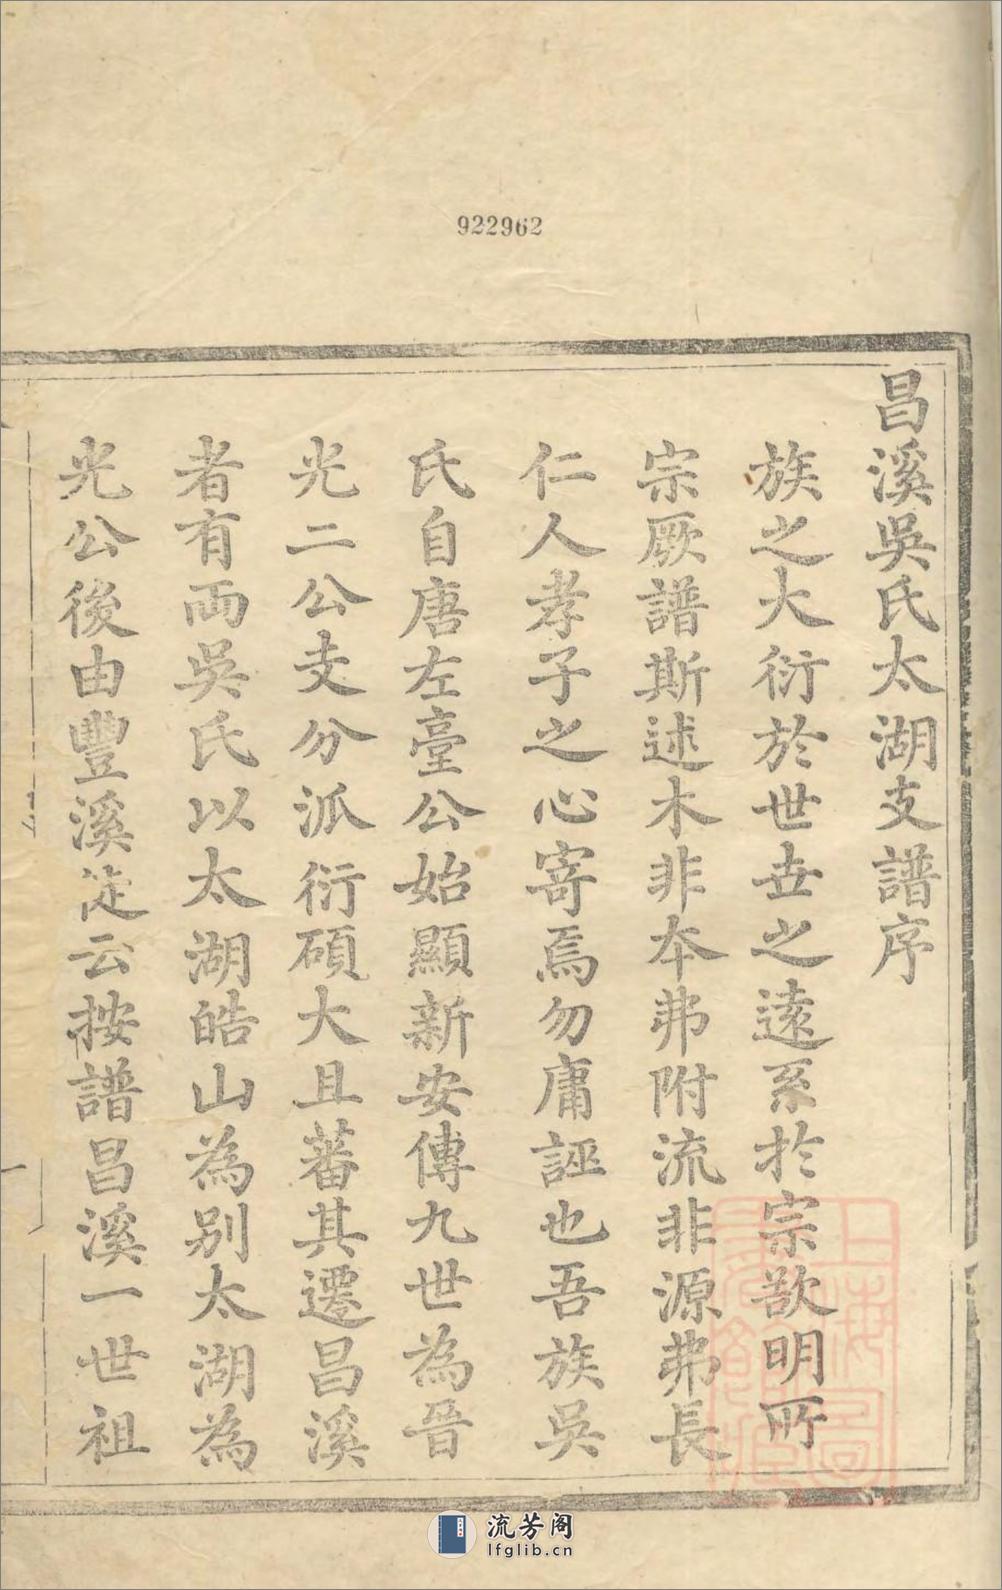 922962
昌溪吳氏太湖支譜序
族之大衍於世世之遠系於宗欲明所
宗厥譜斯述木非本弗附流非源弗長
仁人孝子之心寄焉勿庸誣也吾族吳
氏自唐左臺公始顯新安傳九世為晉
光二公支分派衍碩大且蕃其遷昌溪
者有両吳氏以太湖皓山為別太湖為
光公後由豐溪徙云按譜昌溪一世祖
流芳阁
lfglib.cn